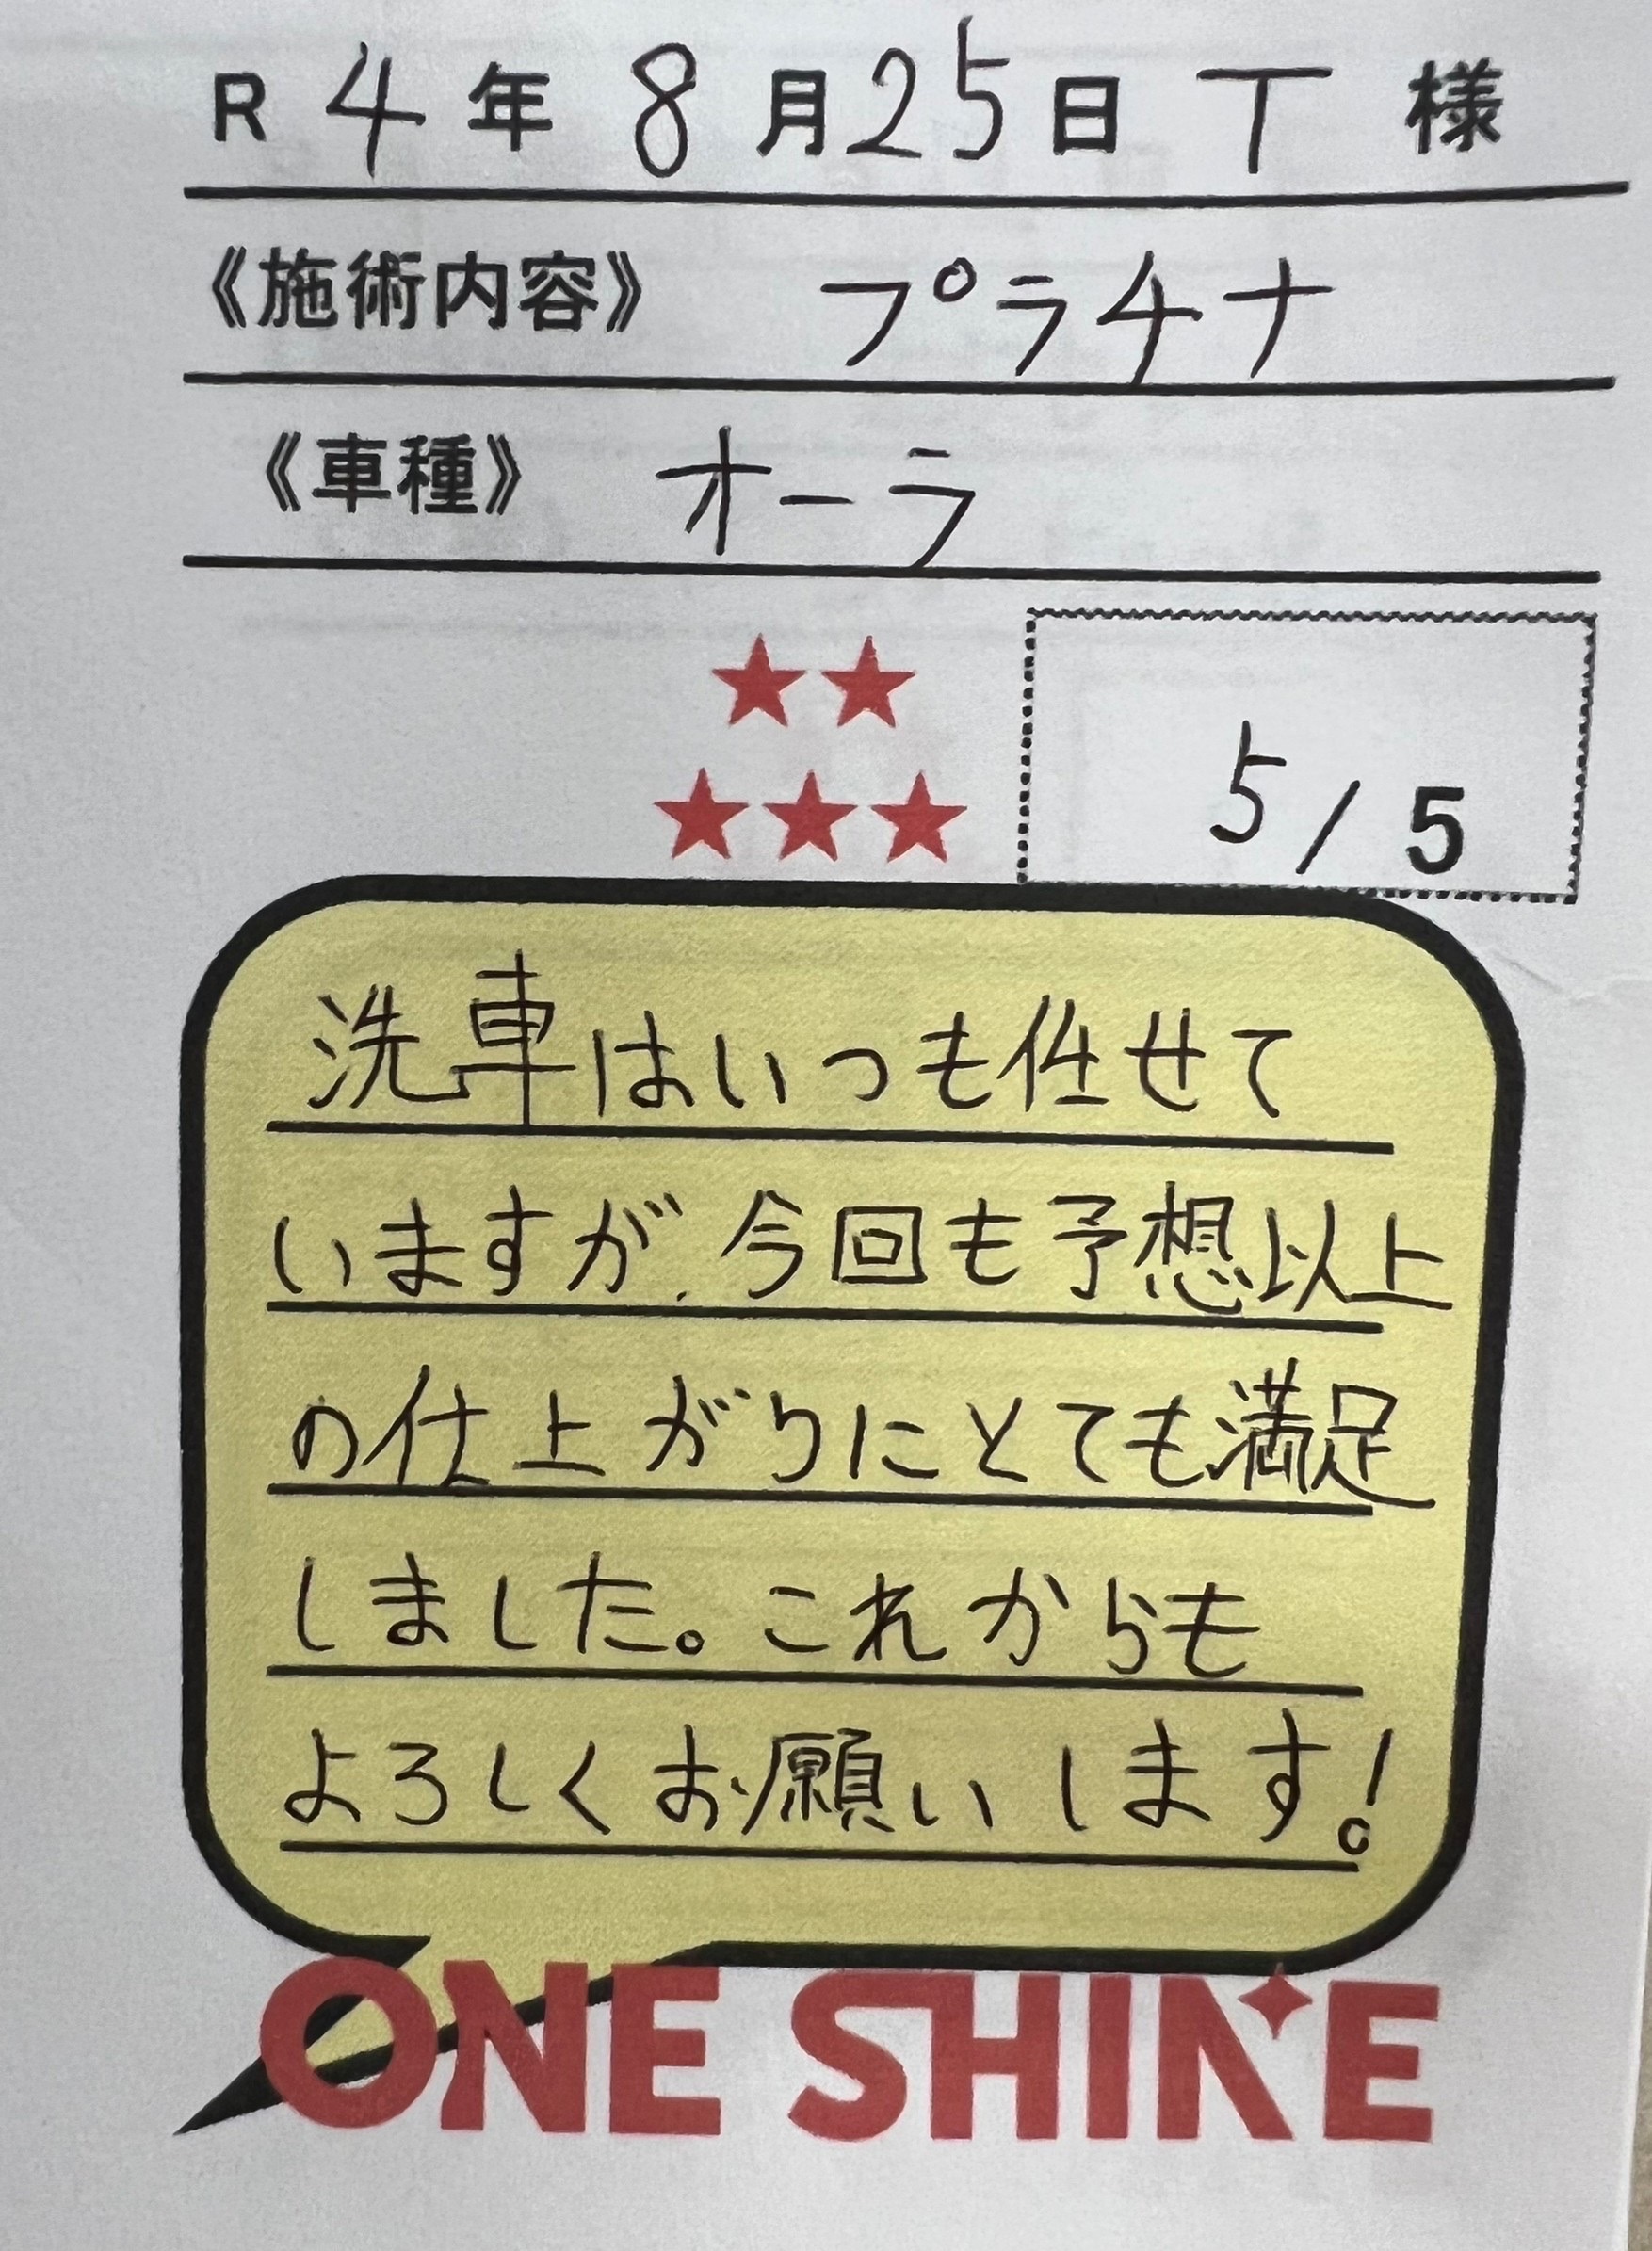 R 4 年 8 月 25 日 T 様
《施術内容》 プラチナ
《車種》 オーラ
★★
★★★
5/5
洗車はいつも任せて
いますが、今回も予想以上
の仕上がりにとても満足
しました。これからも
よろしくお願いします!
ONE SHINE